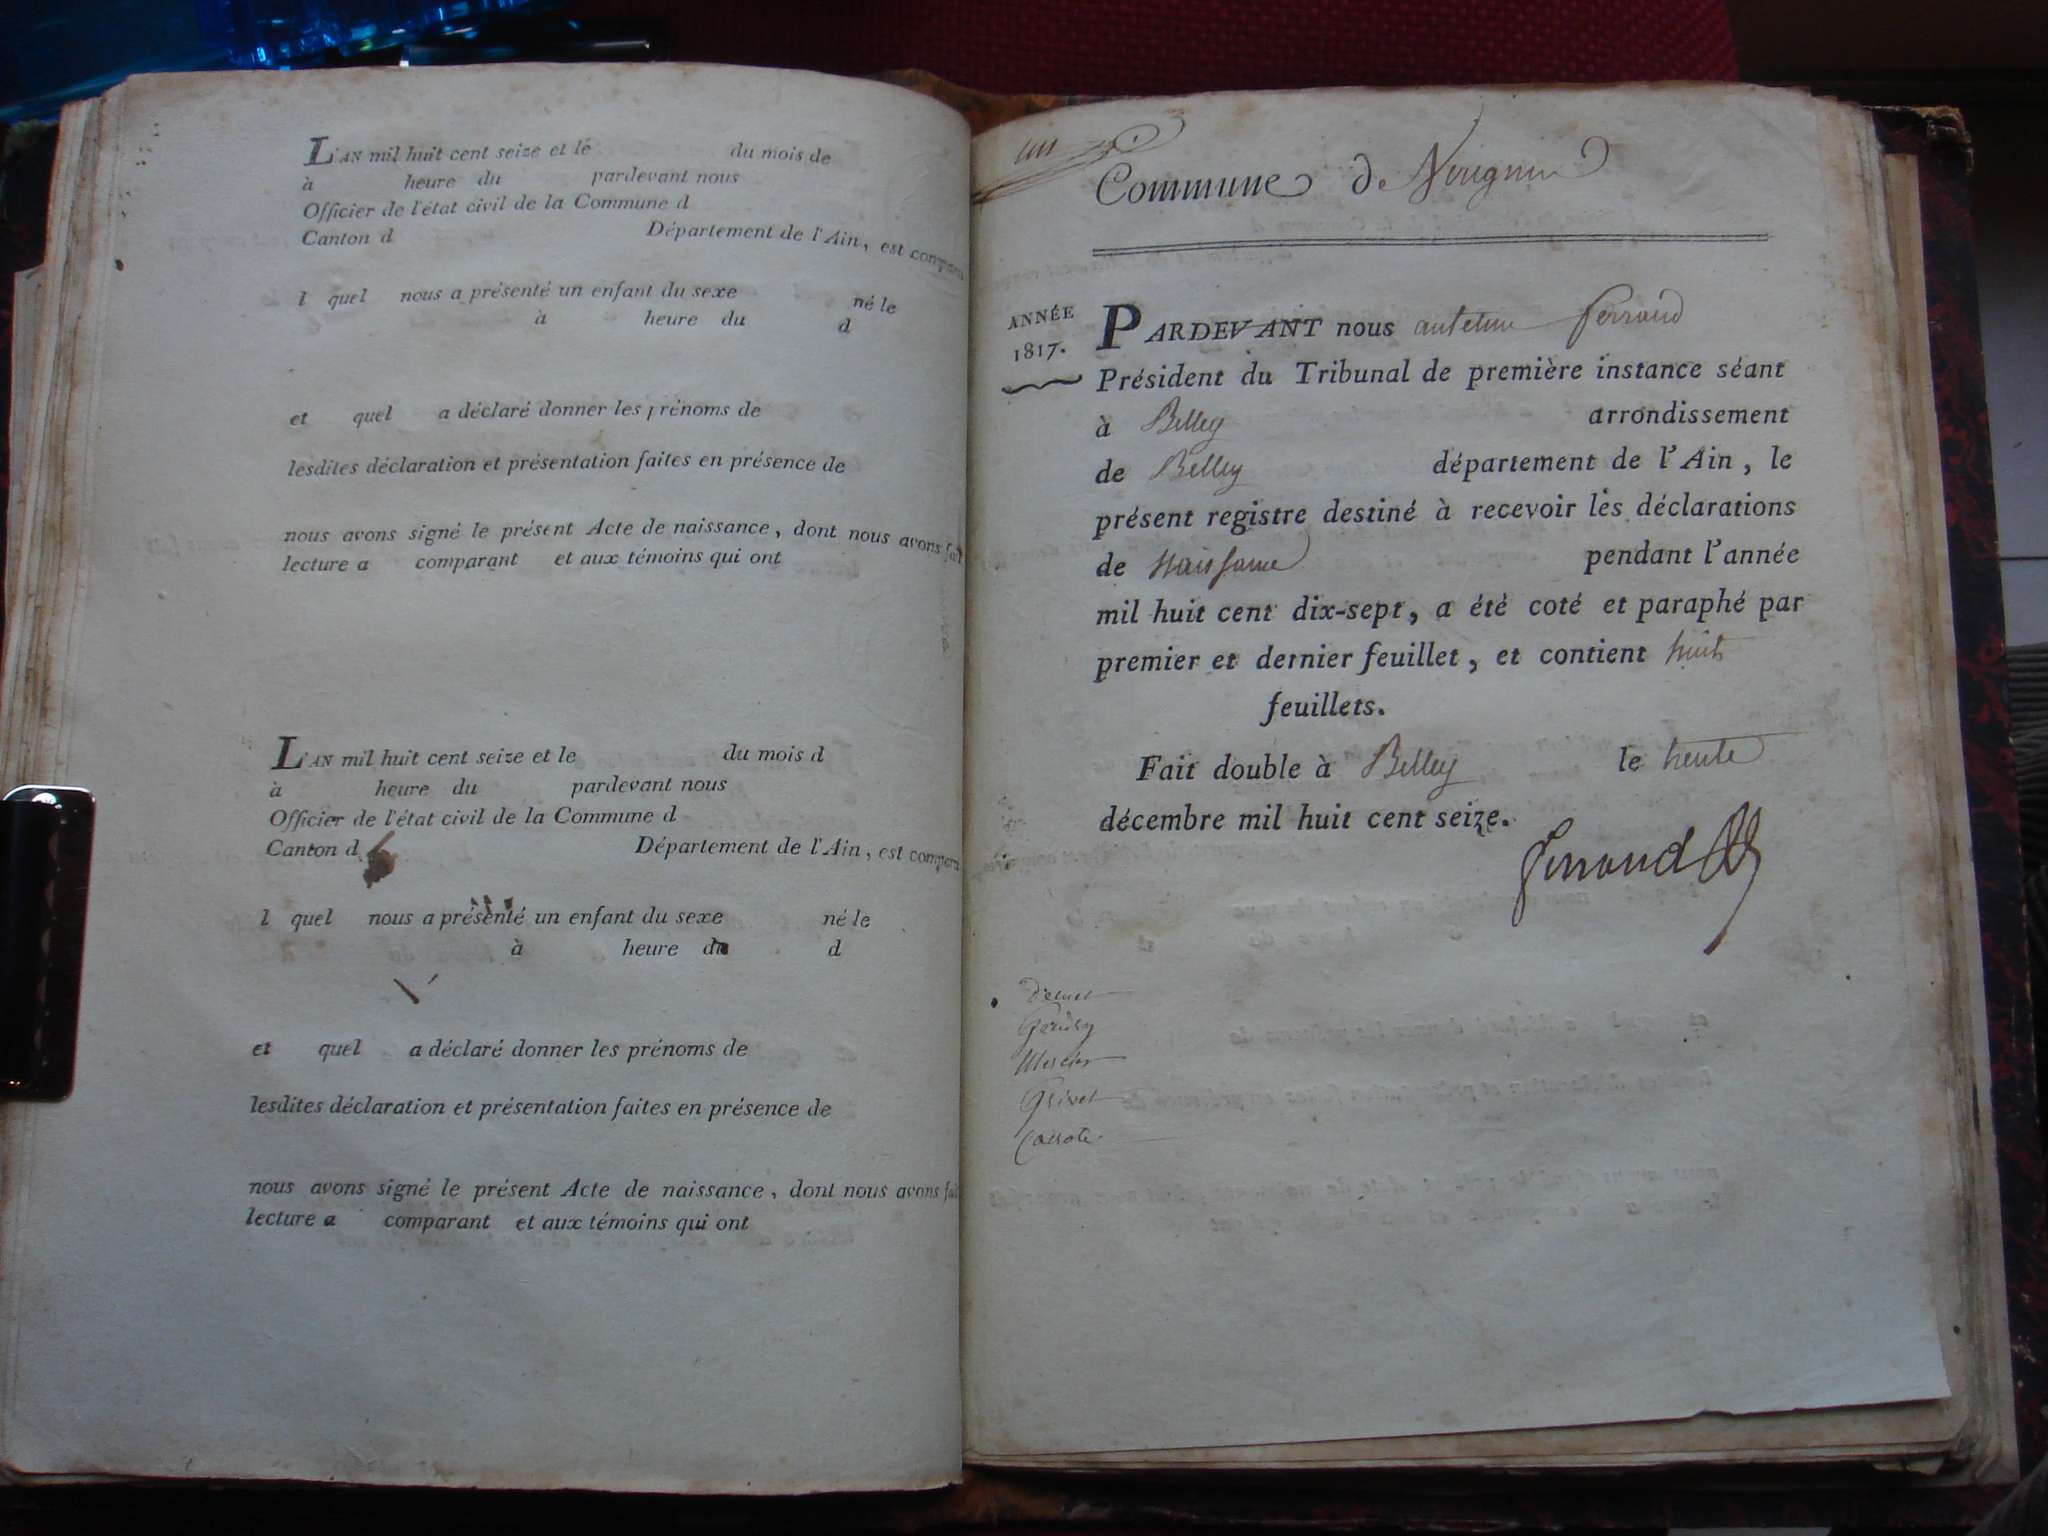 L'AN mil huit cent seize et le du mois de
à heure du pardevant nous
Officier de l'état civil de la Commune d
Canton d Département de l'Ain, est comparu
l quel nous a présenté un enfant du sexe né le
à heure du d
et quel a déclaré donner les prénoms de
lesdites déclaration et présentation faites en présence de
nous avons signé le présent Acte de naissance, dont nous avons fait
lecture a comparant et aux témoins qui ont
L'AN mil huit cent seize et le du mois d
à heure du pardevant nous
Officier de l'état civil de la Commune d
Canton d Département de l'Ain, est comparu
l quel nous a présenté un enfant du sexe né le
à heure du d
et quel a déclaré donner les prénoms de
lesdites déclaration et présentation faites en présence de
nous avons signé le présent Acte de naissance, dont nous avons fait
lecture a comparant et aux témoins qui ont
un
Commune de Virignin
ANNÉE
1817.
PARDEVANT nous antelme ferrand
Président du Tribunal de première instance séant
à Belley arrondissement
de Belley département de l'Ain, le
présent registre destiné à recevoir les déclarations
de Naissance pendant l'année
mil huit cent dix-sept, a été coté et paraphé par
premier et dernier feuillet, et contient huit
feuillets.
Fait double à Belley le trente
décembre mil huit cent seize.
ferrand
Mercier
Grivet